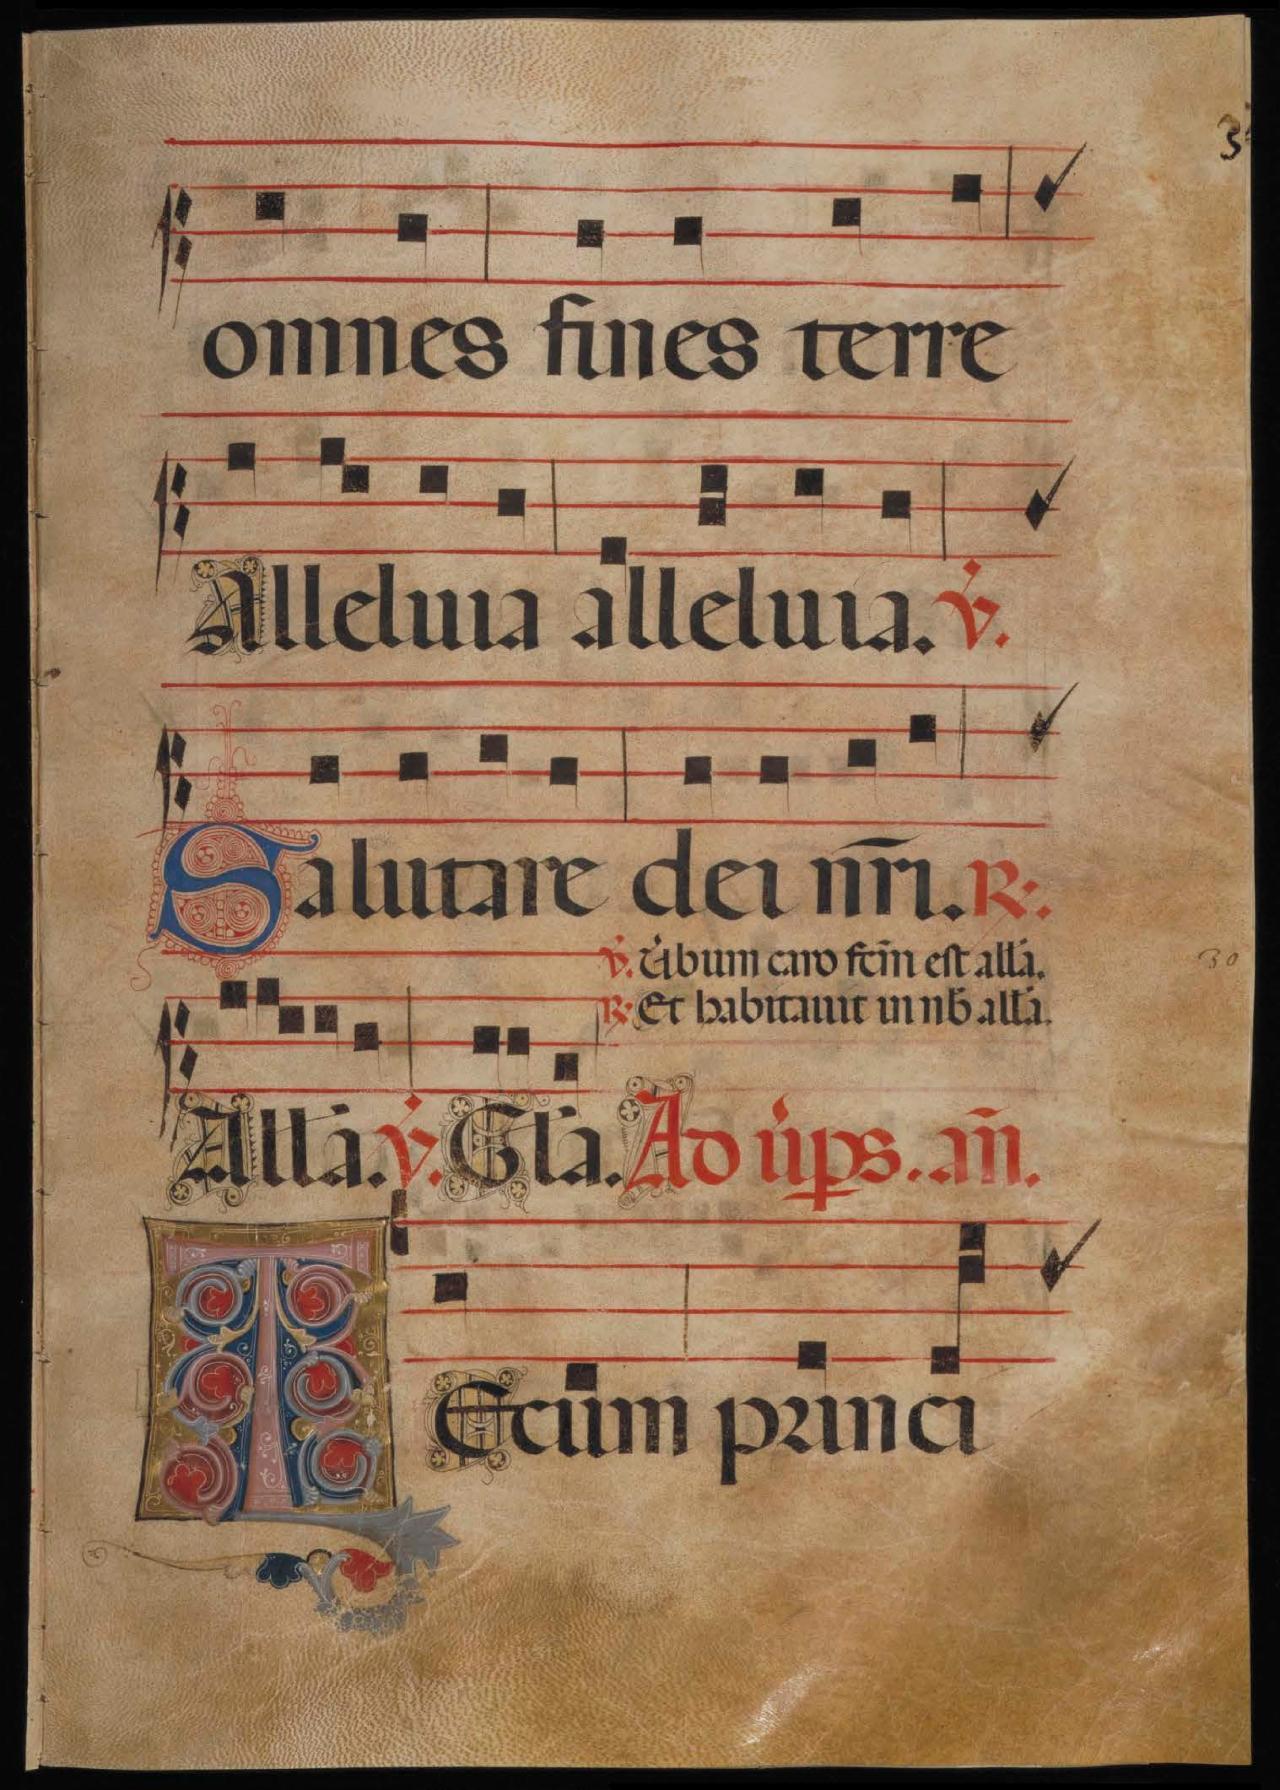 3
omnes fines terre
Alleluia alleluia. v̇.
Salutare dei nr̄i. R:
v̇. U̇bum caro fcm̄ est alla.
R: Et habitauit in nb̄ alla.
30
Alla. v̇. Gla. Ad u̇ps. añ.
TEcum princi